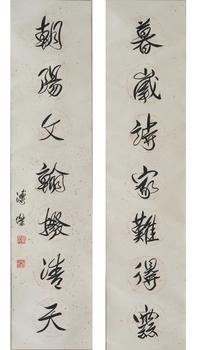 暮歲詩家難得
朝陽文翰清天
溥傑